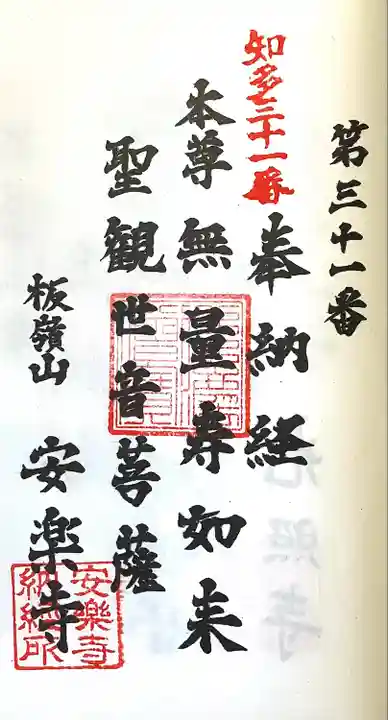 第三十一番
知多三十一番
奉納経
本尊無量寿如来
聖観世音菩薩
板嶺山 安楽寺
安樂寺
納経所